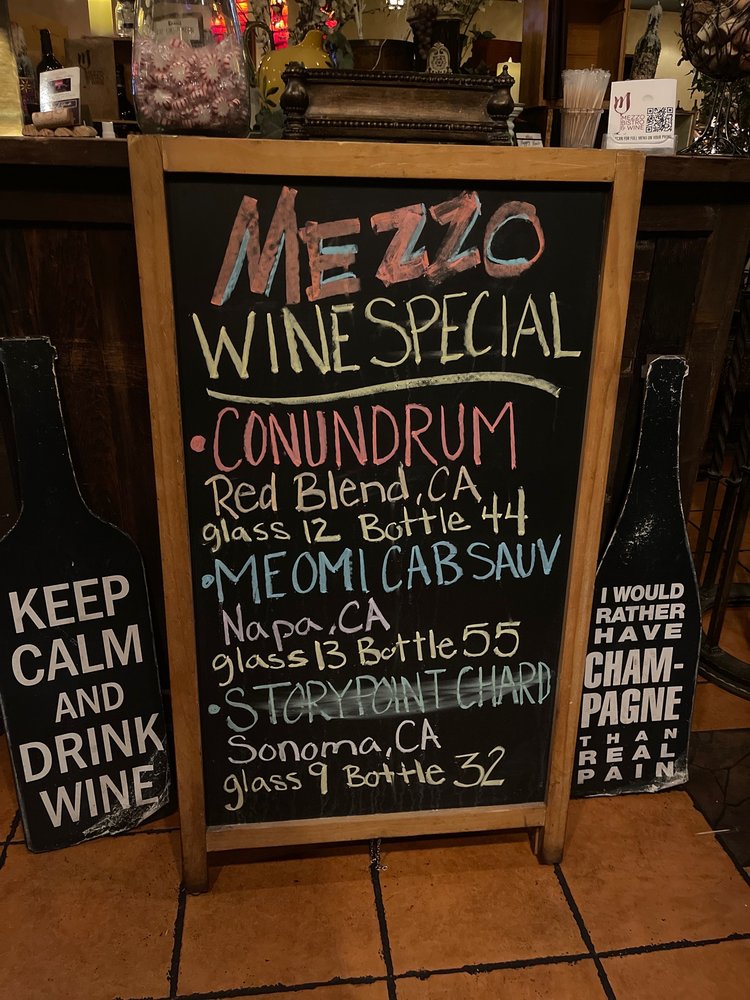 MEZZO
BISTRO
& WINE
SCAN FOR FULL MENU ON YOUR PHONE
MEZZO
WINE SPECIAL
• CONUNDRUM
Red Blend, CA
glass 12 Bottle 44
• MEOMI CAB SAUV
Napa, CA
glass 13 Bottle 55
• STORYPOINT CHARD
Sonoma, CA
glass 9 Bottle 32
KEEP
CALM
AND
DRINK
WINE
I WOULD
RATHER
HAVE
CHAM-
PAGNE
THAN
REAL
PAIN